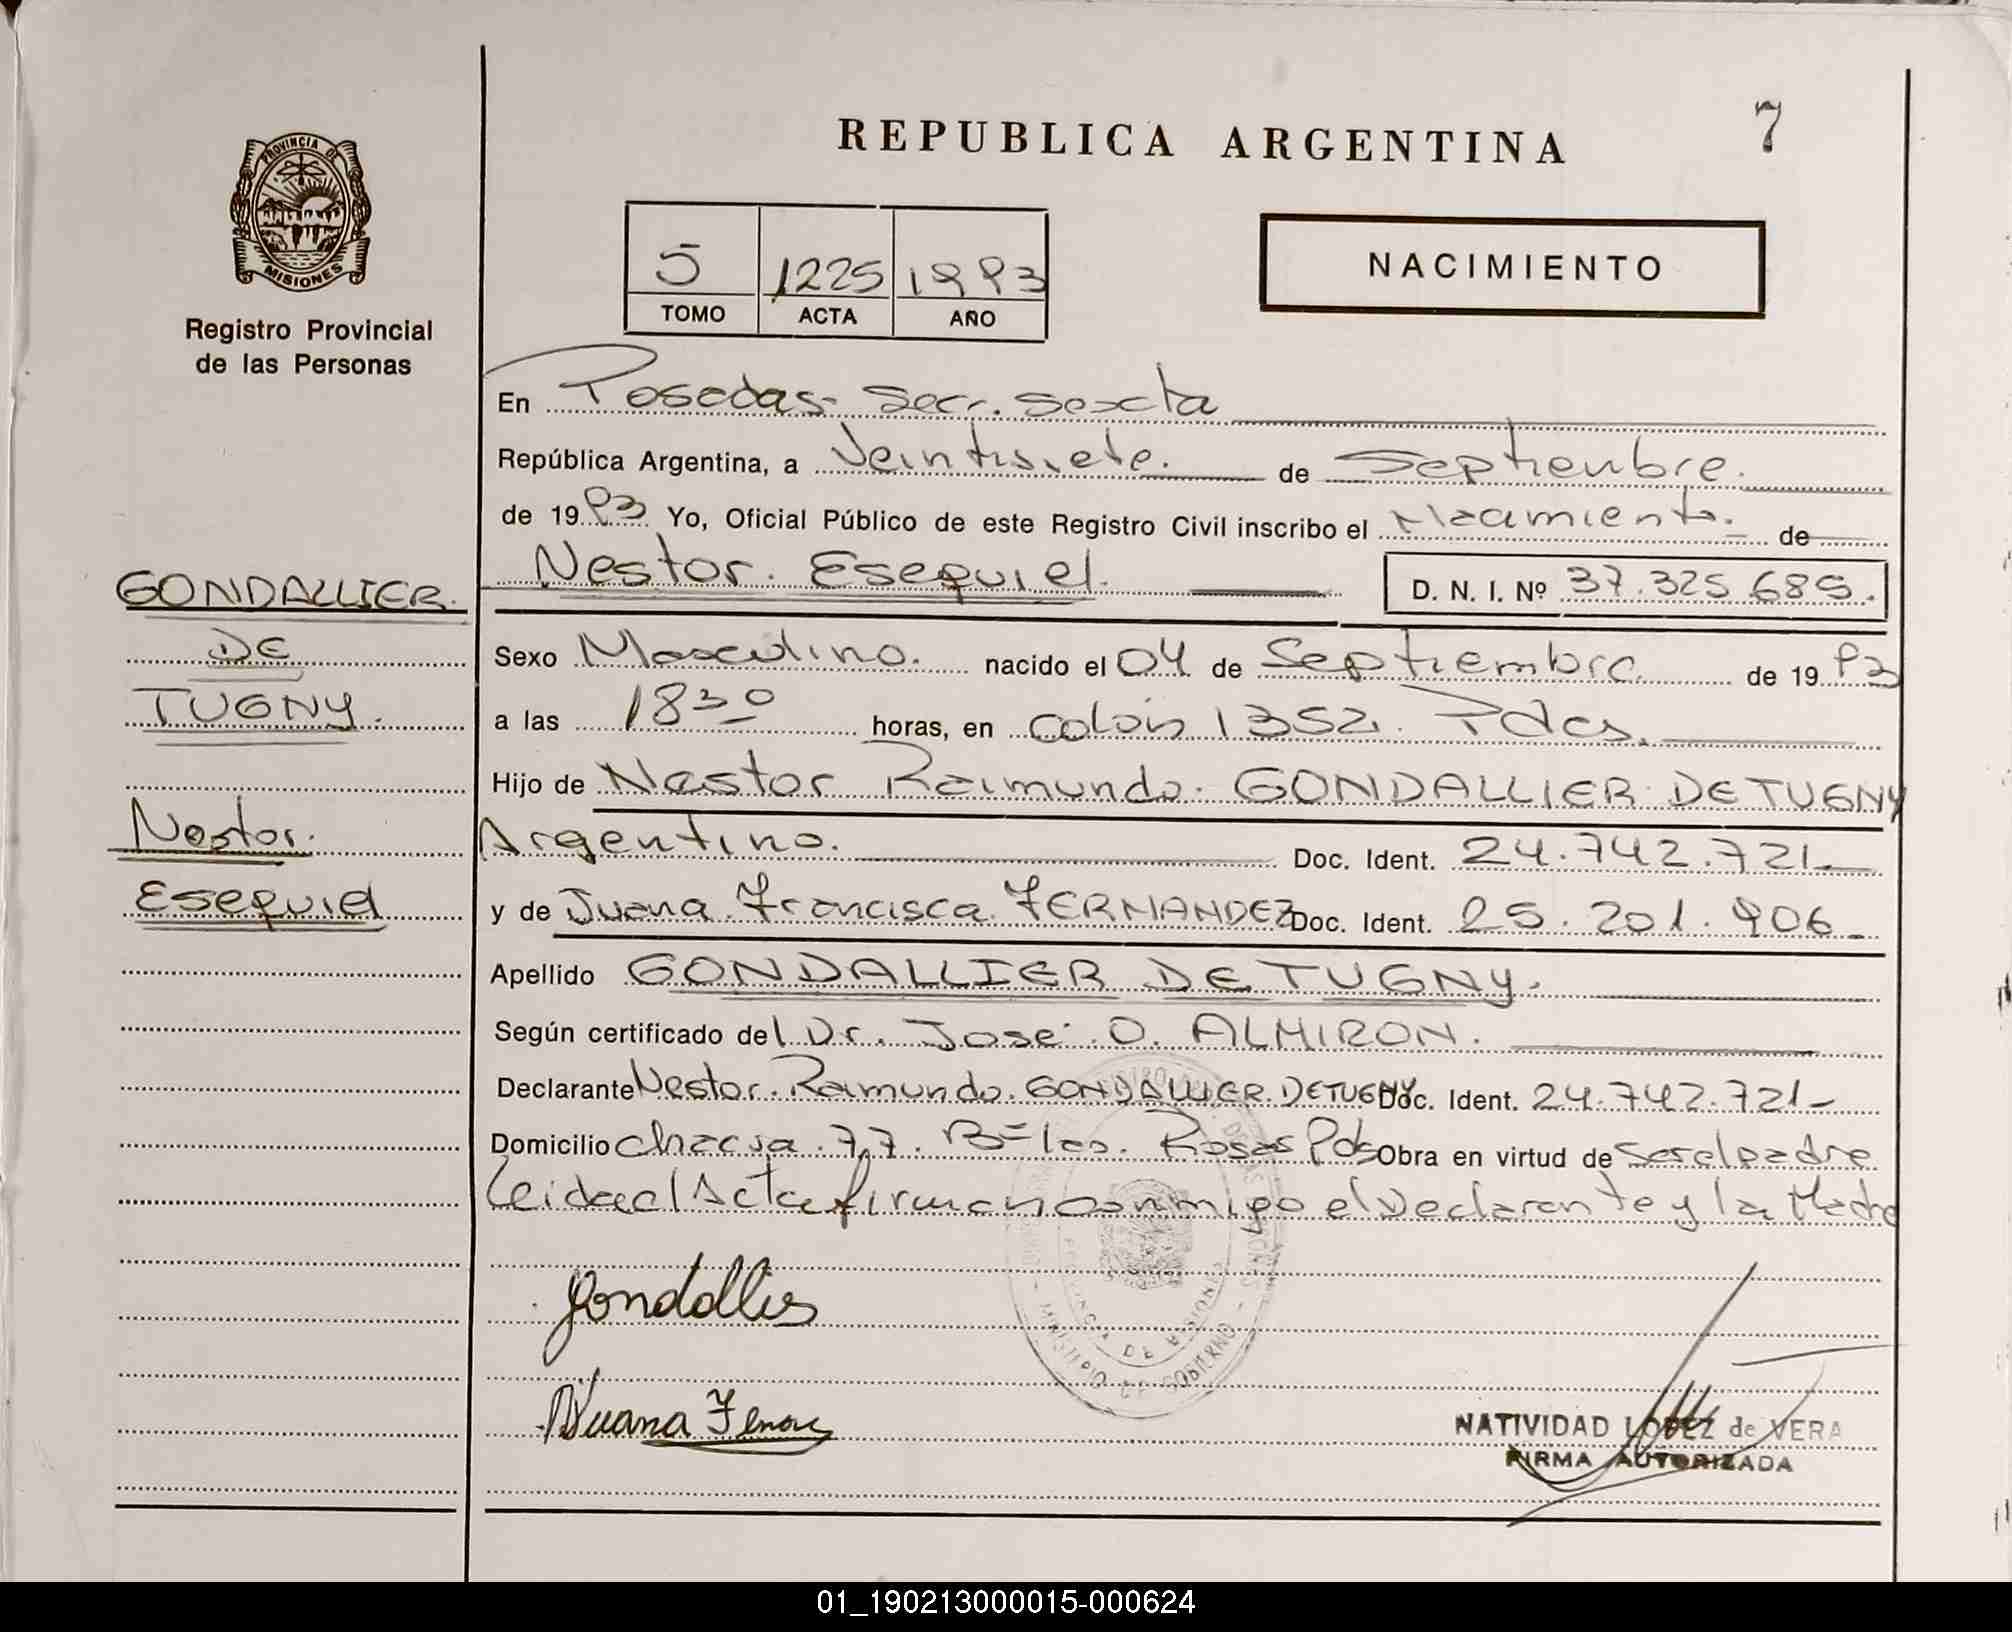 REPUBLICA ARGENTINA
7
PROVINCIA DE
MISIONES
Registro Provincial
de las Personas
5 1225 1993
TOMO ACTA AÑO
NACIMIENTO
En Posadas- Secc. Sexta
República Argentina, a Veintisiete. de Septiembre.
de 1993 Yo, Oficial Público de este Registro Civil inscribo el Nacimiento. de
Nestor. Esequiel. D. N. I. Nº 37.325.689.
GONDALLIER.
DE
TUGNY.
Nestor.
Esequiel
Sexo Masculino. nacido el 04 de Septiembre. de 1993
a las 18 30 horas, en Colón 1352. Pdas.
Hijo de Nestor Raimundo. GONDALLIER DE TUGNY
Argentino. Doc. Ident. 24.742.721-
y de Juana Francisca FERNANDEZ Doc. Ident. 25.201.906-
Apellido GONDALLIER DE TUGNY.
Según certificado del Dr. José O. ALMIRON.
Declarante Nestor. Raimundo. GONDALLIER. DE TUGNY Doc. Ident. 24.742.721-
Domicilio Chacra 77. Bº las Rosas Pdas Obra en virtud de ser el padre
Leida el Acta firman conmigo el Declarante y la Madre
Gondallier
Juana Fernan
PROVINCIA DE MISIONES
MINISTERIO DE GOBIERNO
NATIVIDAD LOPEZ de VERA
FIRMA AUTORIZADA
01_190213000015-000624